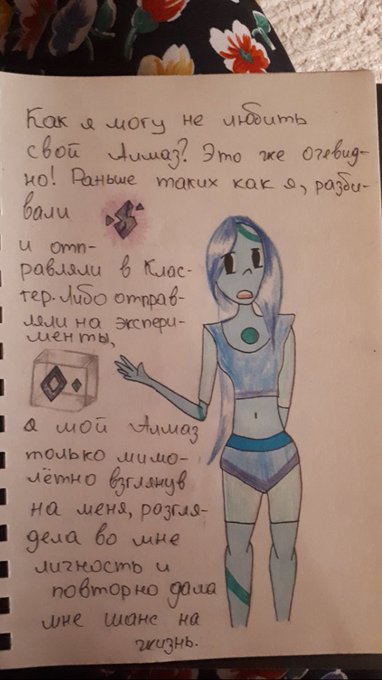 Как я могу не любить
свой Алмаз? Это же очевид-
но! Раньше таких как я, разби-
вали
и отп-
равляли в Клас-
тер. Либо отправ-
ляли на экспери-
менты,
я мой Алмаз
только мимо-
лётно взглянув
на меня, разгля-
дела во мне
личность и
повторно дала
мне шанс на
жизнь.